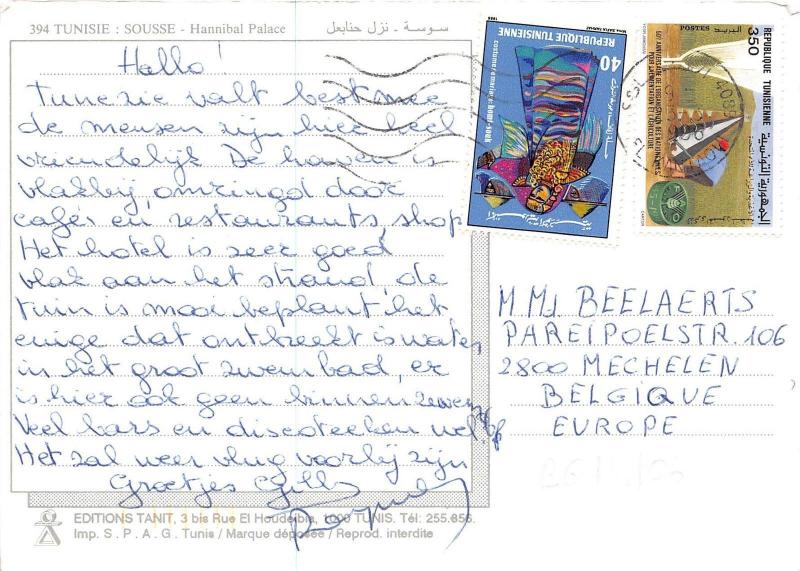 394 TUNISIE : SOUSSE - Hannibal Palace
سوسة - نزل حنابعل
Hallo!
Tunesie valt best mee
de mensen zijn hier heel
vriendelijk. De haven is
vlakbij, omringd door
cafes en restaurants, shop
Het hotel is zeer goed
vlak aan het strand, de
tuin is mooi beplant het
enige dat ontbreekt is water
in het groot zwembad, er
is hier ook geen binnenzwem
Veel bars en discoteeken wel.
Het zal weer vlug voorbij zijn
Groetjes
EDITIONS TANIT, 3 bis Rue El Houdeibia, 1000 TUNIS. Tél: 255.656
Imp. S. P. A. G. Tunis / Marque déposée / Reprod. interdite
REPUBLIQUE TUNISIENNE
40
1988
REPUBLIQUE TUNISIENNE
350
POSTES
البريد
الجمهورية التونسية
FAO
CARTOR
M. Md BEELAERTS
PAREIPOELSTR. 106
2800 MECHELEN
BELGIQUE
EUROPE